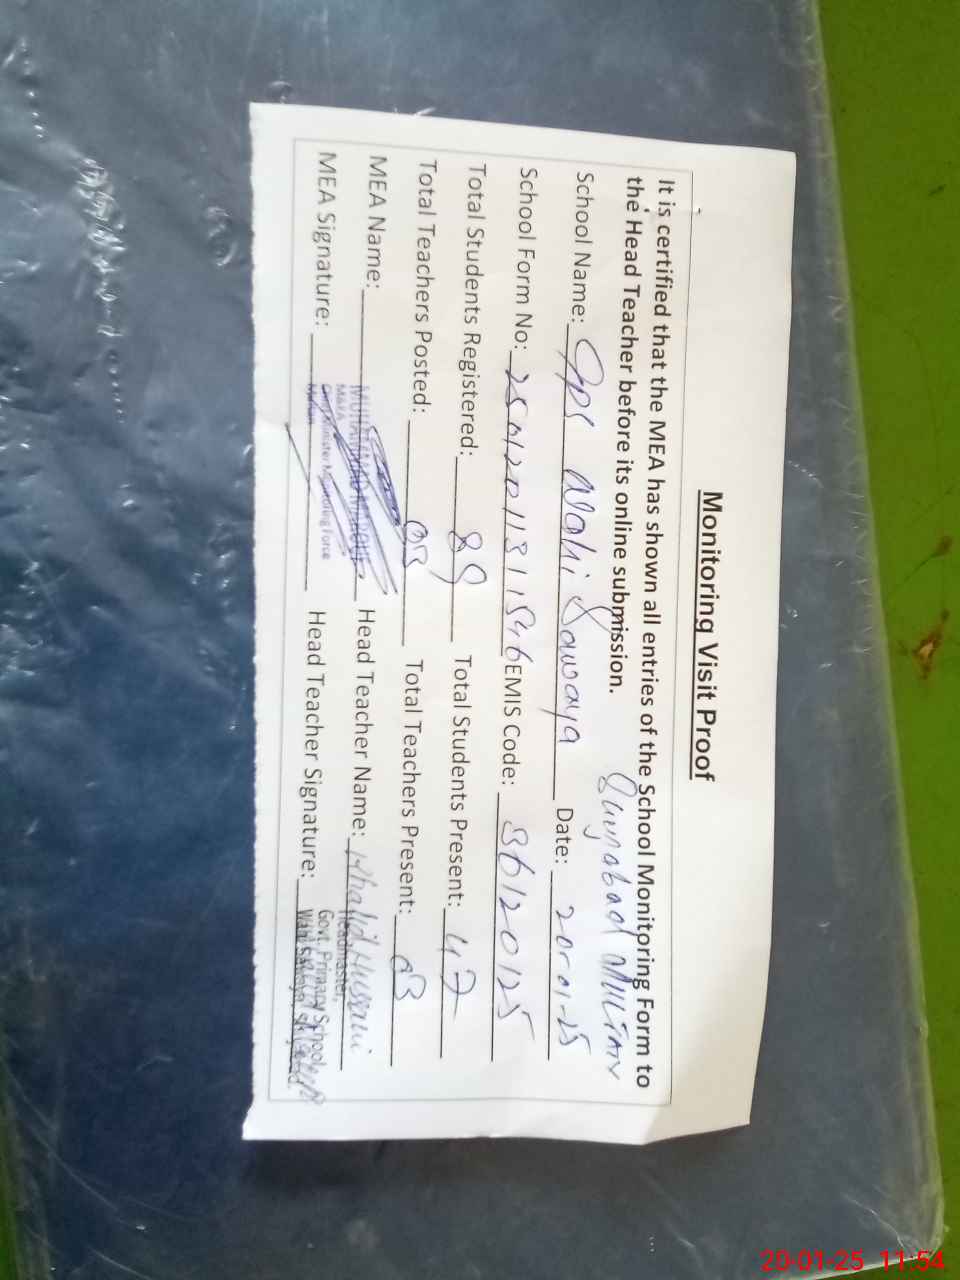 Monitoring Visit Proof
It is certified that the MEA has shown all entries of the School Monitoring Form to
the Head Teacher before its online submission.
MULTAN
School Name: GPS Wahi Sawaya Date: 20-01-25
School Form No: EMIS Code: 36120125
Total Students Registered: 89 Total Students Present: 47
Total Teachers Posted: 03 Total Teachers Present: 03
MEA Name: Head Teacher Name: Khalid Hussain
MEA Signature: Head Teacher Signature:
M&EA
Chief Minister Monitoring Force
Multan
Headmaster,
Govt. Primary School
20-01-25 11:54